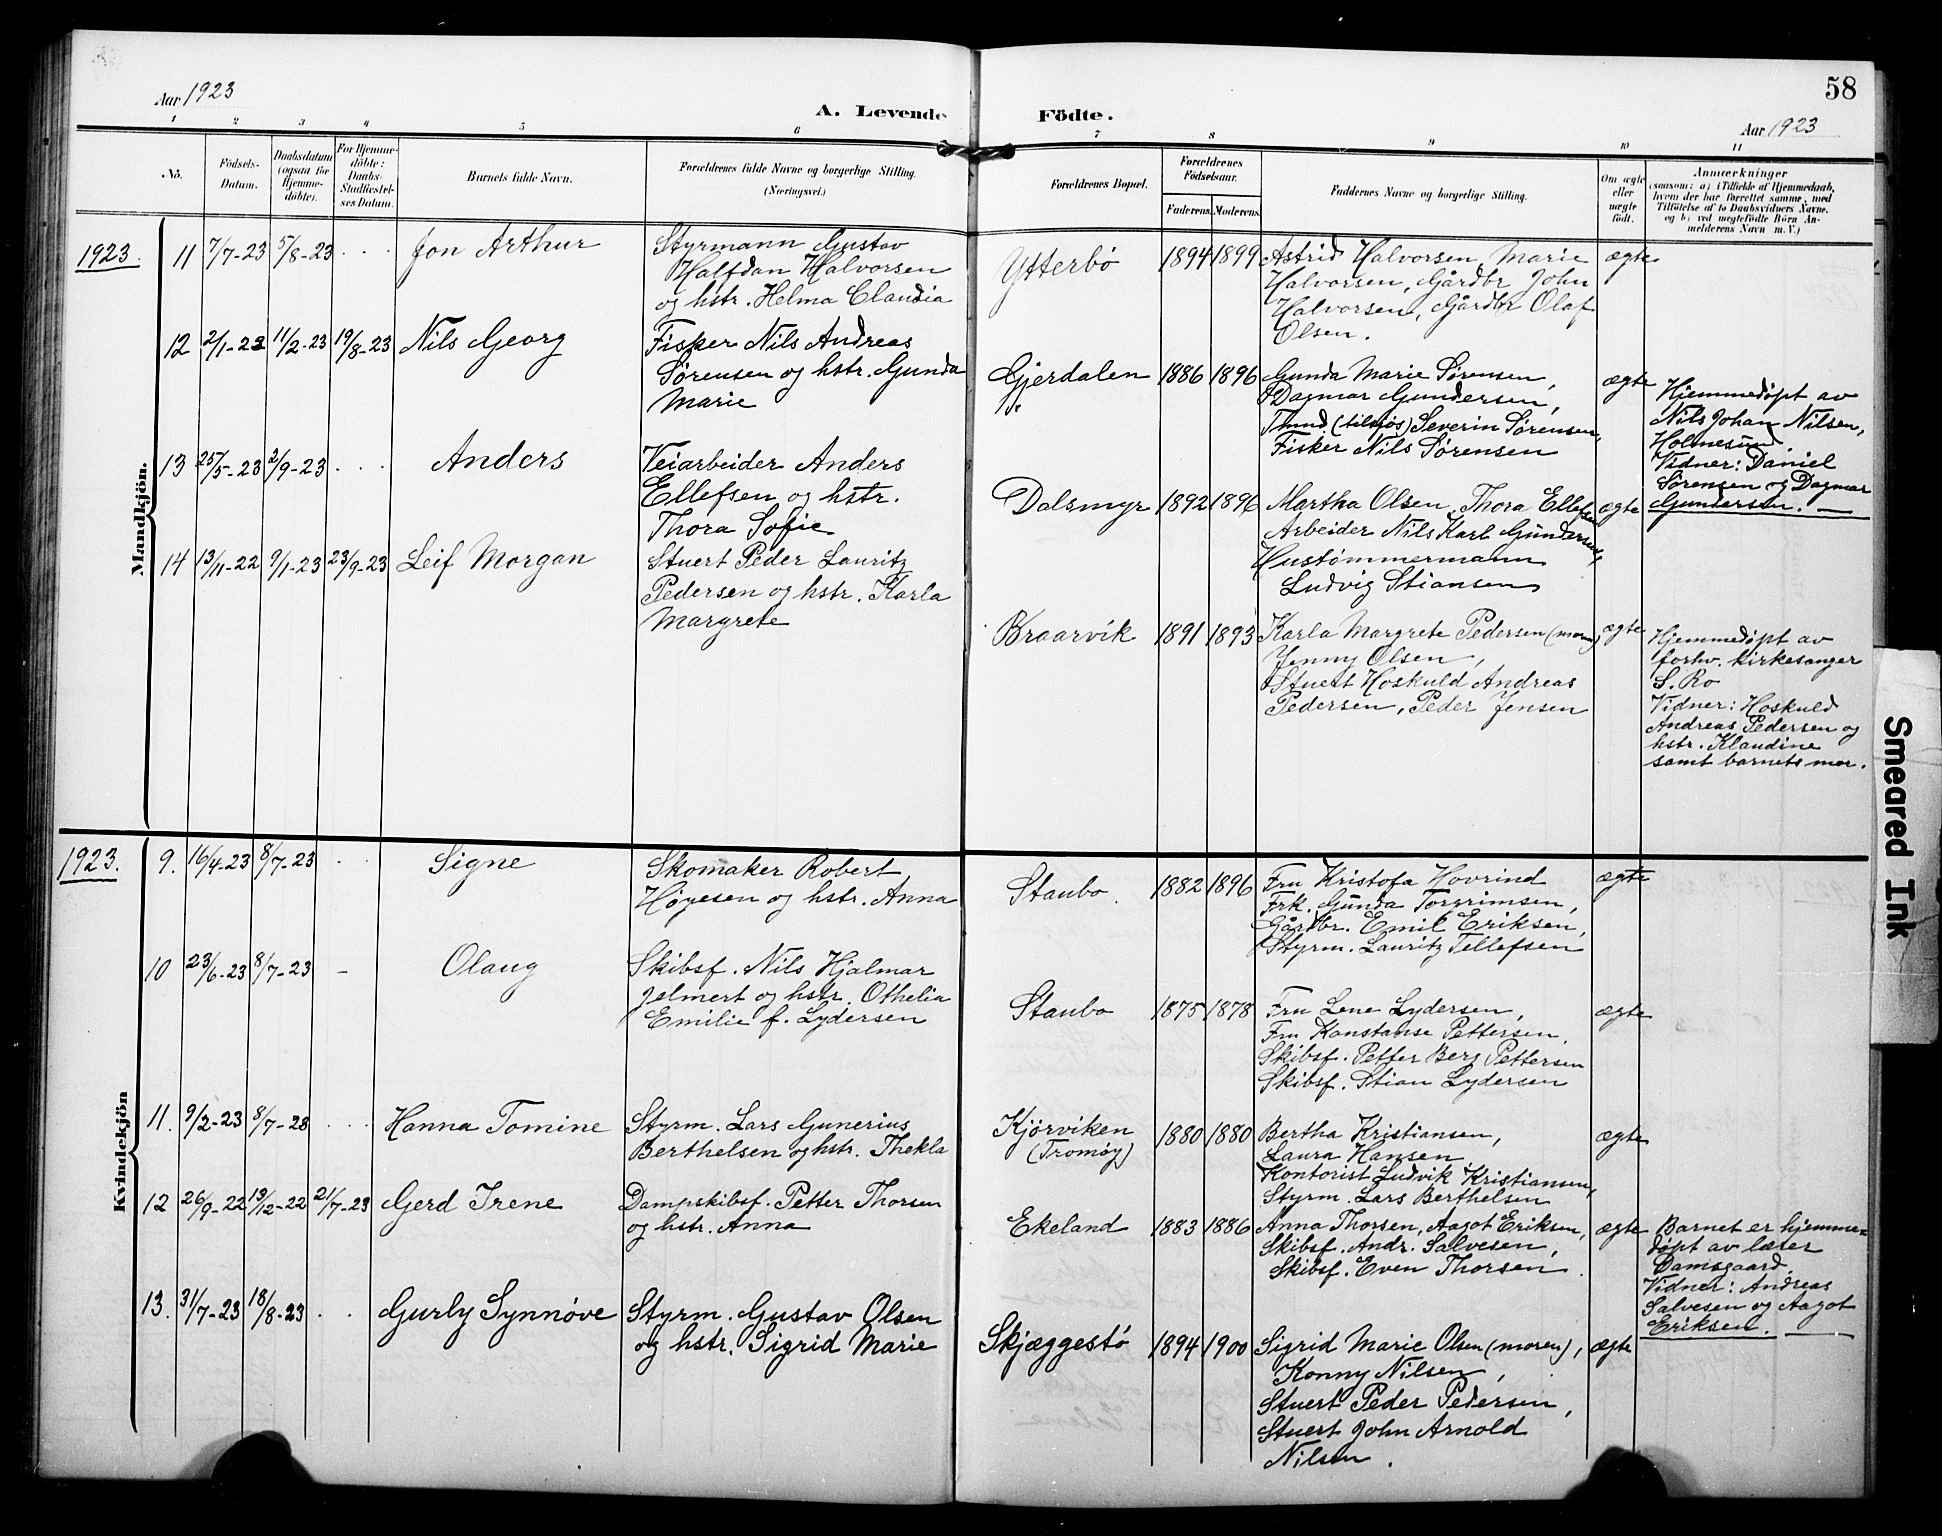 58
Aar 1923
A. Levende Födte.
Aar 1923
1 2 3 4 5 6 7 8 9 10 11
No.
Födsels-
Datum.
Daabsdatum
(ogsaa for
Hjemme-
döbte).
For Hjemme-
döbte:
Daabs-
Stadfæstel-
ses Datum.
Barnets fulde Navn.
Forældrenes fulde Navne og borgerlige Stilling.
(Næringsvei.)
Forældrenes Bopæl.
Forældrenes
Födselsaar.
Faderens. Moderens.
Faddernes Navne og borgerlige Stilling.
Om ægte
eller
uægte
födt.
Anmærkninger
(saasom: a) i Tilfælde af Hjemmedaab,
hvem der har forrettet samme, med
Tilföielse af to Daabsvidners Navne,
og b) ved uægtefödte Börn An-
melderens Navn m. V.)
Mandkjön.
1923.
11 7/7-23 5/8-23 Jon Arthur
Styrmann Gustav
Halfdan Halvorsen
og hstr. Helma Claudia
Ytterbö 1894 1899
Astrid Halvorsen, Marie
Halvorsen, Gårdbr John
Halvorsen, Gårdbr Olaf
Olsen.
ægte
12 2/1-23 11/2-23 19/8-23 Nils Georg
Fisker Nils Andreas
Sørensen og hstr. Gunda
Marie
Gjerdalen 1886 1896
Gunda Marie Sørensen,
Dagmar Gundersen,
(tilsjøs) Severin Sørensen,
Fisker Nils Sørensen
ægte
Hjemmedøpt av
Nils Johan Nilsen,
Holmesund
Vidner: Daniel
Sørensen og Dagmar
Gundersen. —
13 25/5-23 2/9-23 Anders
Veiarbeider Anders
Ellefsen og hstr.
Thora Sofie
Dalsmyr 1892 1896
Martha Olsen, Thora Ellefsen
Arbeider Nils Karl Gundersen,
Hustømmermann
Ludvig Stiansen
ægte
14 13/11-22 9/1-23 23/9-23 Leif Morgan
Stuert Peder Lauritz
Pedersen og hstr. Karla
Margrete
Braarvik 1891 1893
Karla Margrete Pedersen (moren)
Jenny Olsen,
Stuert Hoskuld Andreas
Pedersen, Peder Jensen
ægte
Hjemmedøpt av
forhv. kirkesanger
S. Ro
Vidner: Hoskuld
Andreas Pedersen og
hstr. Klaudine
samt barnets mor.
Kvindekjön
1923.
9. 16/4-23 8/7-23 Signe
Skomaker Robert
Høyesen og hstr. Anna
Staubo. 1882 1896
Fru Kristofa Hovrind
Frk. Gunda Torgrimsen,
Gårdbr. Emil Eriksen,
Styrm. Lauritz Tellefsen
ægte
10 23/6-23 8/7-23 – Olaug
Skibsf. Nils Hjalmar
Jelmert og hstr. Othelia
Emilie f. Lydersen
Staubo 1875 1878
Fru Lene Lydersen,
Fru Konstanse Pettersen,
Skibsf. Petter Berg Pettersen
Skibsf. Stian Lydersen
ægte
11. 9/2-23 8/7-23 Hanna Tomine
Styrm. Lars Gunerius
Berthelsen og hstr. Thekla
Kjørviken
(Tromøy)
1880 1880
Bertha Kristiansen,
Laura Hansen
Kontorist Ludvik Kristiansen,
Styrm. Lars Berthelsen
ægte
12 26/9-22 13/12-22 21/7-23 Gerd Irene
Dampskibsf. Petter Thorsen
og hstr. Anna
Ekeland 1883 1886
Anna Thorsen, Aagot Eriksen,
Skibsf. Andr. Salvesen,
Skibsf. Even Thorsen.
ægte
Barnet er hjemme-
døpt av lærer
Damsgaard.
Vidner: Andreas
Salvesen og Aagot
Eriksen. —
13. 31/7-23 18/8-23 Gurly Synnøve
Styrm. Gustav Olsen
og hstr. Sigrid Marie
Skjæggestö 1894 1900
Sigrid Marie Olsen (moren),
Konny Nilsen,
Stuert Peder Pedersen,
Stuert John Arnold
Nilsen.
ægte
Smeared Ink